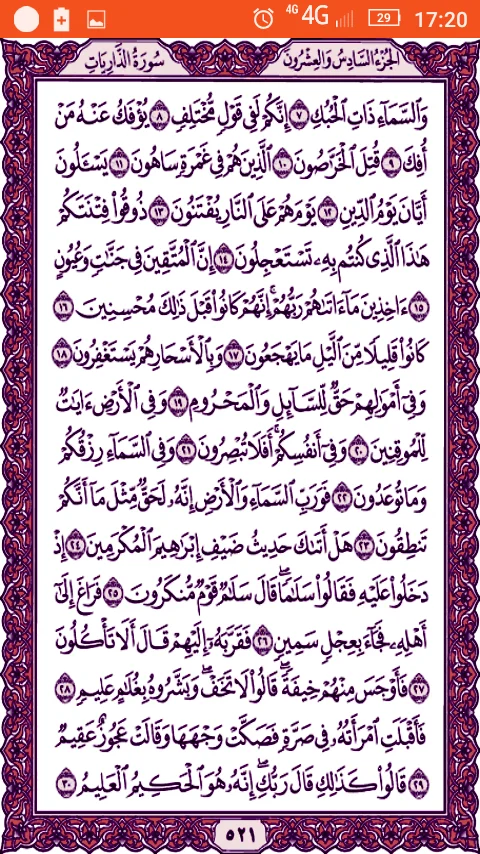 4G 4G 29 17:20
الجزء السادس والعشرون سورة الذاريات
والسماء ذات الحبك ٧ إنكم لفي قول مختلف ٨ يؤفك عنه من
أفك ٩ قتل الخرصون ١٠ الذين هم في غمرة ساهون ١١ يسـٔلون
أيان يوم الدين ١٢ يوم هم على النار يفتنون ١٣ ذوقوا فتنتكم
هذا الذي كنتم به تستعجلون ١٤ إن المتقين في جنت وعيون
١٥ ءاخذين ما ءاتىهم ربهم إنهم كانوا قبل ذلك محسنين ١٦
كانوا قليلا من اليل ما يهجعون ١٧ وبالأسحار هم يستغفرون ١٨
وفي أمولهم حق للسائل والمحروم ١٩ وفي الأرض ءايت
للموقنين ٢٠ وفي أنفسكم أفلا تبصرون ٢١ وفي السماء رزقكم
وما توعدون ٢٢ فورب السماء والأرض إنه لحق مثل ما أنكم
تنطقون ٢٣ هل أتىك حديث ضيف إبرهيم المكرمين ٢٤ إذ
دخلوا عليه فقالوا سلما قال سلم قوم منكرون ٢٥ فراغ إلى
أهله فجاء بعجل سمين ٢٦ فقربه إليهم قال ألا تأكلون
٢٧ فأوجس منهم خيفة قالوا لا تخف وبشروه بغلم عليم ٢٨
فأقبلت امرأته في صرة فصكت وجهها وقالت عجوز عقيم
٢٩ قالوا كذلك قال ربك إنه هو الحكيم العليم ٣٠
٥٢١